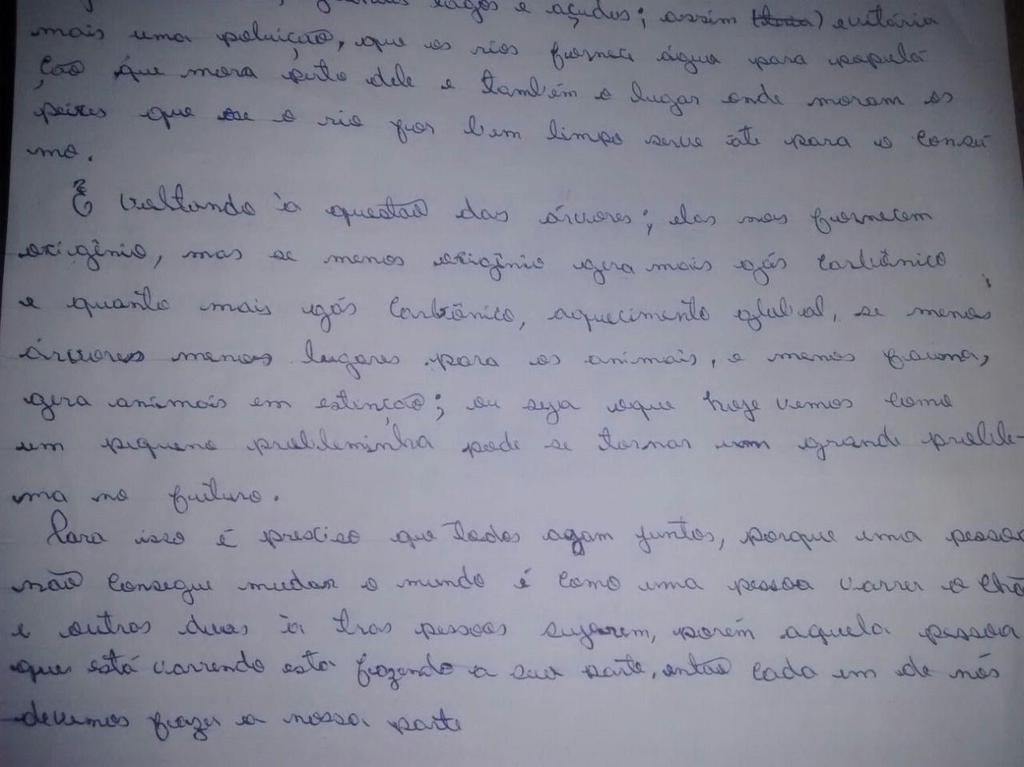 lagos e açudes; assim evitária
mais uma poluição, que os rios fornece água para populá
ção que mora perto dele e também o lugar onde moram os
peixes que se o rio for bem limpo serve até para o consu
mo.
E voltando à questão das árvores; elas nos fornecem
oxigênio, mas se menos oxigênio gera mais gás carbônico
e quanto mais gás carbônico, aquecimento global, se menos
árvores menos lugares para os animais, e menos fauna,
gera animais em estinção; ou seja oque hoje vemos como
um pequeno probleminha pode se tornar um grande proble-
ma no futuro.
Para isso é preciso que todos agam juntos, porque uma pessoa
não consegue mudar o mundo é como uma pessoa varrer o chão
e outros duas à tras pessoas sujarem, porém aquela pessoa
que está varrendo esta fazendo a sua parte, então cada um de nós
devemos fazer a nossa parte